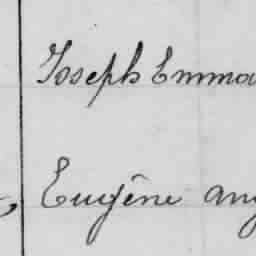 Joseph Emma
Eugène Ang